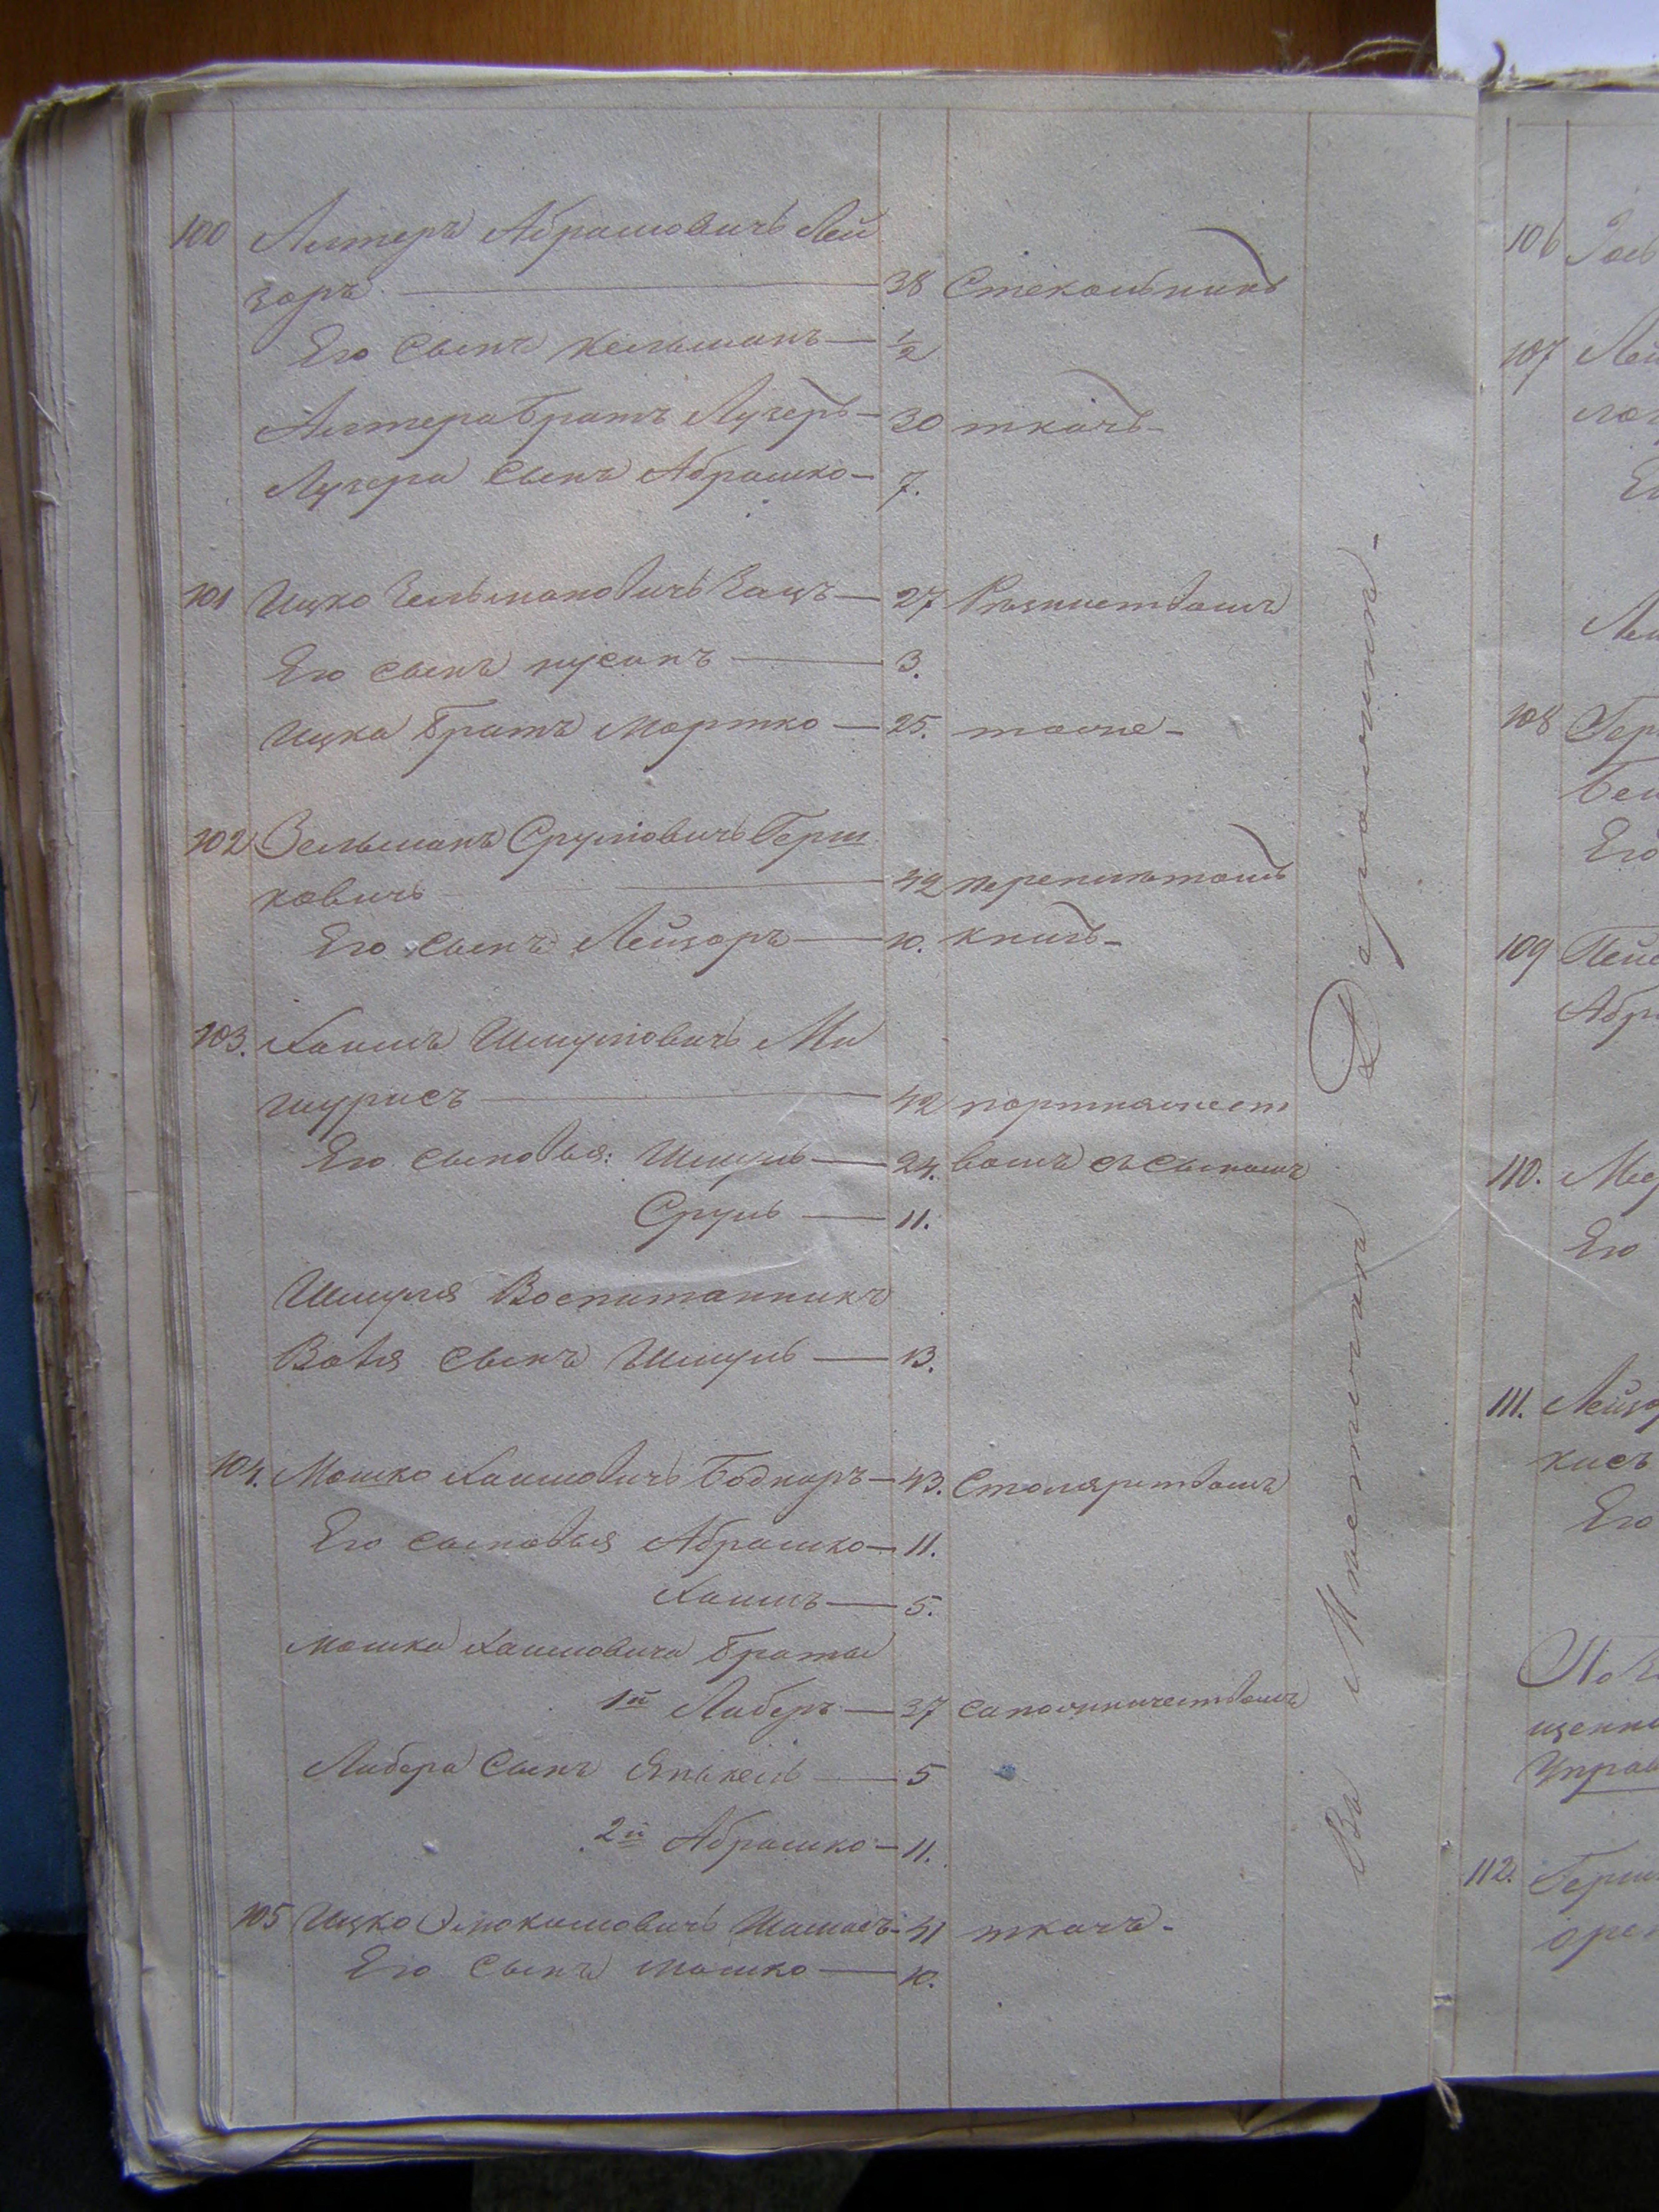 100 Алтеръ Абрамовичъ Лей
зоръ — 38 Стекольникъ
Его сынъ Кельманъ — 1/2
Алтера братъ Лузеръ — 30 ткачъ
Лузера сынъ Абрамко — 7.
101 Ицко Зельмановичъ Кацъ — 27
Его сынъ Нусинъ — 3.
Ицка братъ Мортко — 25. тоже
102 Зельманъ Сруловичъ Герш
ковичъ — 42 переплетомъ
Его сынъ Лейзоръ — 10. книгъ
103. Хаимъ Шмуловичъ Ми
шурисъ — 42 портняжест
Его сыновья: Шмуль — 24. вомъ съ сыномъ
Сруль — 11.
Шмуля Воспитанникъ
сынъ Шмуль — 13.
104. Мошко Хаимовичъ Боднаръ — 43. Столярствомъ
Его сыновья Абрамко — 11.
Хаимъ — 5.
Мошка Хаимовича братья
1й Либеръ — 37 сапожничествомъ
Либера сынъ Янкель — 5
2й Абрамко — 11.
105 Ицко — 41 ткачъ
Его сынъ Мошко — 10.
Въ Мѣстечкѣ
106
107 Лей
Ег
108 Гер
Его
109
Абр
110.
Его
111. Лейзо
кисъ
Его
112. Герш